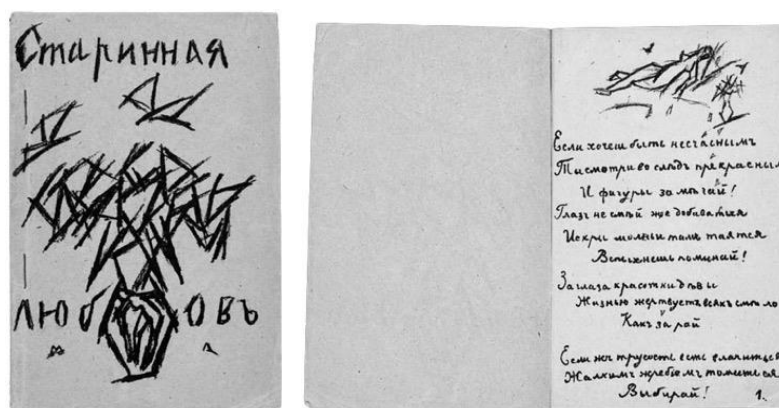 Старинная
ЛЮБОВЪ
Если хочеш быть несчасным
Ти смотри во слѣдъ прекрасным
И фигуры замѣчай!
Глазъ не смѣй же добиваться
Искры молньи тамъ таятся
Вспыхнешь поминай!
За глаза красотки дѣвы
Жизнью жертвуетъ всякъ смѣло
Какъ за рай
Если жъ трусость есть
Жалкимъ жребіемъ томиться
Выбирай!
1.